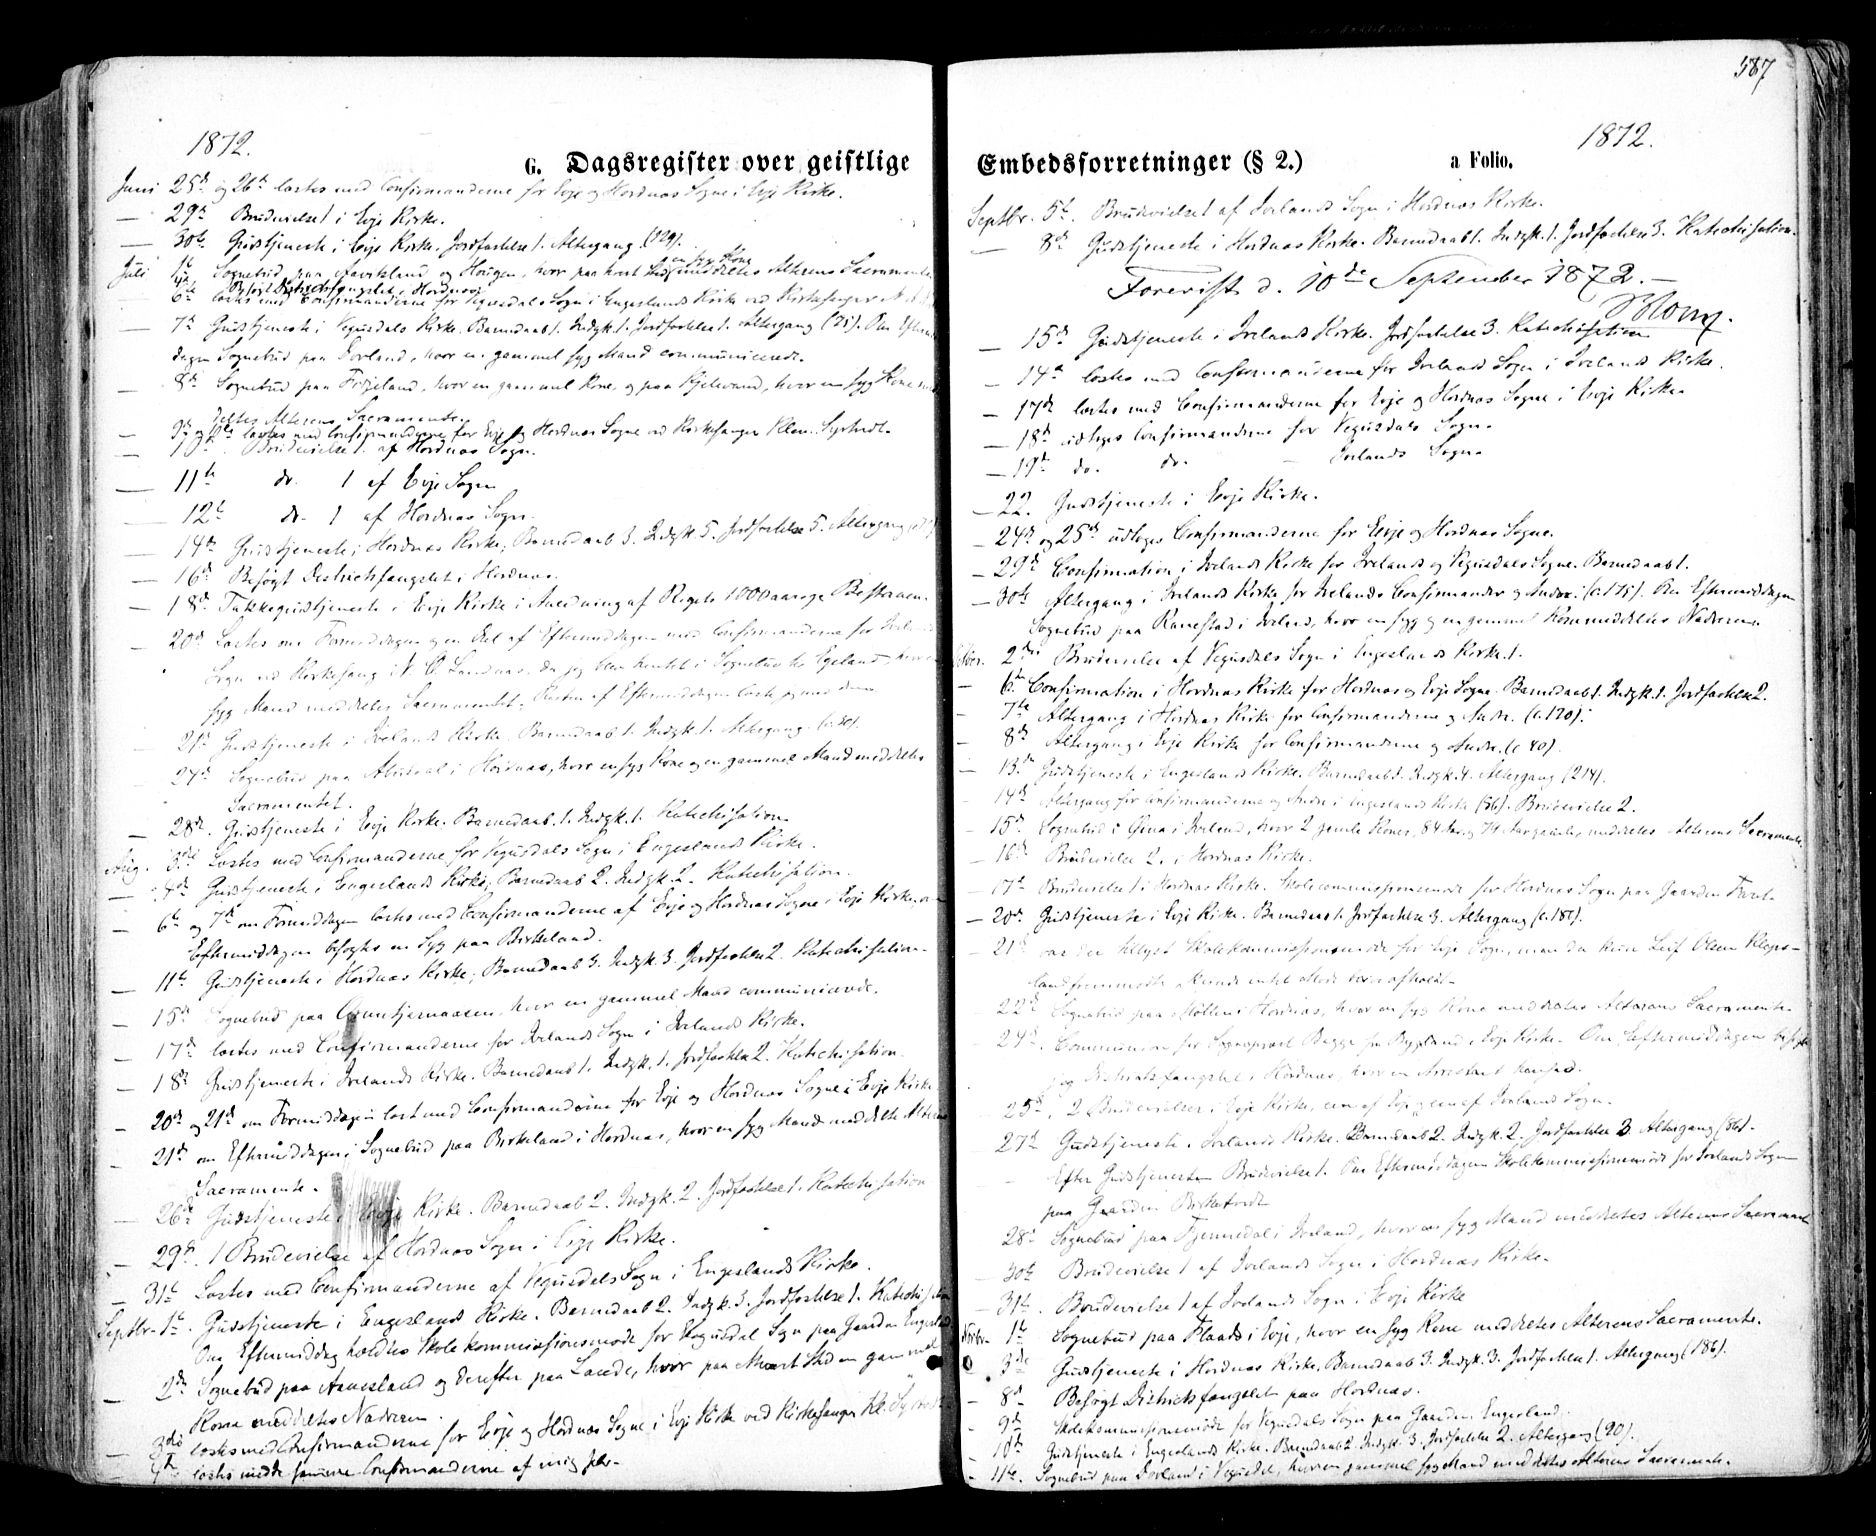 1872.
G. Dagsregister over geistlige
Juni 25de og 26de læstes med Confirmanderne for Evje og Hordnæs Sogne i Evje Kirke.
— 29de Brudevielse 1 i Evje Kirke.
— 30te Gudstjeneste i Evje Kirke. Jordfæstelse 1. Altergang (129).
Juli 1te Sognebud paa og Hougen, hvor paa hvert Sted en syg Kone meddeltes Alterens Sacramente
Besøgt Districtsfængslet i Hordnæs
6te læstes med Confirmanderne for Vegusdals Sogn i Engeslands Kirke ved Kirkesanger
7de Gudstjeneste i Vegusdals Kirke. Barnedaab 1. Indgk. 1. Jordfæstelse 1. Altergang (21). Om Efterm.
dagen Sognebud paa Dovland, hvor en gammel syg Mand communicerede.
— 8de Sognebud paa , hvor en gammel Kone, og paa , hvor en syg Kone med
deltes Alterens Sacramente.
— 9de og 10de læstes med Confirmanderne for Evje og Hordnæs Sogne ved Kirkesanger
— 10de Brudevielse 1 af Hordnæs Sogn.
— 11te do. 1 af Evje Sogn
— 12te do. 1 af Hordnæs Sogn.
— 14de Gudstjeneste i Hordnæs Kirke, Barnedaab 3. Indgk. 5. Jordfæstelse 5. Altergang
— 16de Besøgt Districtsfængslet i Hordnæs.
— 18de Takkegudstjeneste i Evje Kirke i Anledning af Rigets 1000aarige Bestaaen.
20de Læstes om Formiddagen og en Del af Eftermiddagen med Confirmanderne for
Sogn ved Kirkesang. , da jeg blev hentet i Sognebud til , hvor en
syg Mand meddeltes Sacramentet. Resten af Eftermiddagen læste jeg med dem.
21de Gudstjeneste i Ivelands Kirke. Barnedaab 1. Indgk. 1. Altergang
27de Sognebud paa i Hordnæs, hvor en syg Kone og en gammel Mand meddeltes
Sacramentet.
— 28de Gudstjeneste i Evje Kirke. Barnedaab. 1. Indgk. 1. Katechisation
Aug. 3die Læstes med Confirmanderne for Vegusdals Sogn i Engeslands Kirke.
— 4de Gudstjeneste i Engeslands Kirke, Barnedaab 2. Indgk. 2. Katechisation.
— 6te og 7de om Formiddagen læstes med Confirmanderne af Evje og Hordnæs Sogne i Evje Kirke, om
Eftermiddagen besøgtes en Syg paa Birkeland.
— 11te Gudstjeneste i Hordnæs Kirke, Barnedaab 3. Indgk. 3. Jordfæstelse 2. Katechisation.
— 15de Sognebud paa , hvor en gammel Mand communicerede.
— 17de læstes med Confirmanderne for Ivelands Sogn i Ivelands Kirke.
— 18de Gudstjeneste i Ivelands Kirke. Barnedaab 1. Indgk. 1. Jordfæstelse 2. Katechisation.
— 20de og 21de om Formiddagen læst med Confirmanderne for Evje og Hordnæs Sogne i Evje Kirke
— 21de om Eftermiddagen i Sognebud paa Birkeland i Hordnæs, hvor en syg Mand meddeltes Alterens
Sacramente.
— 26de Gudstjeneste i Evje Kirke. Barnedaab 2. Indgk. 2. Jordfæstelse 1. Katechisation
— 29de. 1 Brudevielse af Hordnæs Sogn i Evje Kirke.
— 31te Læstes med Confirmanderne af Vegusdals Sogn i Engeslands Kirke.
Septbr. 1te Gudstjeneste i Engeslands Kirke. Barnedaab 2. Indgk. 3. Jordfæstelse 1. Katechisation
Om Eftermiddag holdtes Skolekommissionsmøde for Vegusdal Sogn paa Gaarden Engesland
— 2de Sognebud paa Aanesland og derefter paa , hvor paa hvert Sted en gammel
Kone meddeltes Nadveren.
— 3die læstes med Confirmanderne for Evje og Hordnæs Sogne i Evje Kirke ved Kirkesanger
— læstes med de samme Confirmanderne af mig selv.
587
1872.
Embedsforretninger (§ 2.) a Folio.
Septbr. 5te. Brudevielse 1 af Ivelands Sogn i Hordnæs Kirke.
— 8de Gudstjeneste i Hordnæs Kirke. Barnedaab 1. Indgk. 1. Jordfæstelse 3. Katechisation.
Forevist d. 10de September 1872. —
Blom.
— 15de Gudstjeneste i Ivelands Kirke. Jordfæstelse 3. Katechisation
— 14de læstes med Confirmanderne for Ivelands Sogn i Ivelands Kirke.
— 17de læstes med Confirmanderne for Evje og Hordnæs Sogne i Evje Kirke.
— 18de udtoges Confirmanderne for Vegusdals Sogn.
— 19de do. do. — Ivelands Sogn.
— 22. Gudstjeneste i Evje Kirke.
— 24de og 25de udtoges Confirmanderne for Evje og Hordnæs Sogne.
— 29de Confirmation i Ivelands Kirke for Ivelands og Vegusdals Sogne. Barnedaab 1.
— 30te Altergang i Ivelands Kirke for Ivelands Confirmander og Andre. (c. 175). Om Eftermiddagen
Sognebud paa Ranestad i Iveland, hvor en syg og en gammel Kone meddeltes Nadveren.
Octbr. 2den Brudevielse af Vegusdals Sogn i Engeslands Kirke 1.
— 6te Confirmation i Hordnæs Kirke for Hordnæs og Evje Sogne. Barnedaab 1. Indgk. 1. Jordfæstelse 2.
— 7de Altergang i Hordnæs Kirke for Confirmanderne og Andre. (c. 170).
— 8de Altergang i Evje Kirke for Confirmanderne og Andre. (c 80).
— 13de Gudstjeneste i Engeslands Kirke. Barnedaab 1. Indgk. 4. Altergang (214).
— 14de Altergang for Confirmanderne og Andre i Engeslands Kirke (56). Brudevielse 2.
— 15de Sognebud i i Iveland, hvor 2 gamle Koner, 84 Aar og 74 Aar gamle, meddeltes Alterens Sacramente.
— 16de Brudevielse 2. i Hordnæs Kirke.
— 17de Brudevielse 1 i Hordnæs Kirke. Skolecommissionsmøde for Hordnæs Sogn paa Gaarden
— 20de Gudstjeneste i Evje Kirke. Barnedaab 1. Jordfæstelse 3. Altergang (c. 180).
— 21de var der tillyst Skolekommissionsmøde for Evje Sogn, men da kun Leif Olsen Kleps-
land fremmødte, kunde intet Møde blive afholdt.
— 22de Sognebud paa Møllen i Hordnæs, hvor en syg Kone meddeltes Alterens Sacramente.
— 24de Communion for Sognepræst Bugge fra Bygland i Evje Kirke. Om Eftermiddagen besøgte
jeg Districtsfængslet i Hordnæs, hvor en Arrestant hensad.
25de. 2 Brudevielser i Evje Kirke, een af Evje og een af Ivelands Sogn.
— 27de Gudstjeneste i Ivelands Kirke. Barnedaab 2. Indgk. 2. Jordfæstelse 3. Altergang (86).
Efter Gudstjenesten Brudevielse 1. Om Eftermiddagen Skolekommissionsmøde for Ivelands Sogn
paa Gaarden Birketveit
28de Sognebud paa i Iveland, hvor en syg Mand meddeltes Alterens Sacramente
— 30te Brudevielse 1 af Ivelands Sogn i Hordnæs Kirke.
— 31te. Brudevielse 1 af Ivelands Sogn i Evje Kirke
Novbr. 1te Sognebud paa Flaads i Evje, hvor en syg Kone meddeltes Alterens Sacramente.
3die Gudstjeneste i Hordnæs Kirke. Barnedaab 3. Indgk. 3. Jordfæstelse 1. Altergang (186).
— 8de Besøgt Districtsfængslet paa Hordnæs.
— 9de Skolekommissionsmøde for Vegusdals Sogn paa Gaarden Engesland.
— 10de Gudstjeneste i Engeslands Kirke. Barnedaab 2. Indgk. 3. Jordfæstelse 2. Altergang (90).
— 11te. Sognebud paa Dovland i Vegusdal, hvor en gammel syg Mand meddeltes Alterens Sacramente.